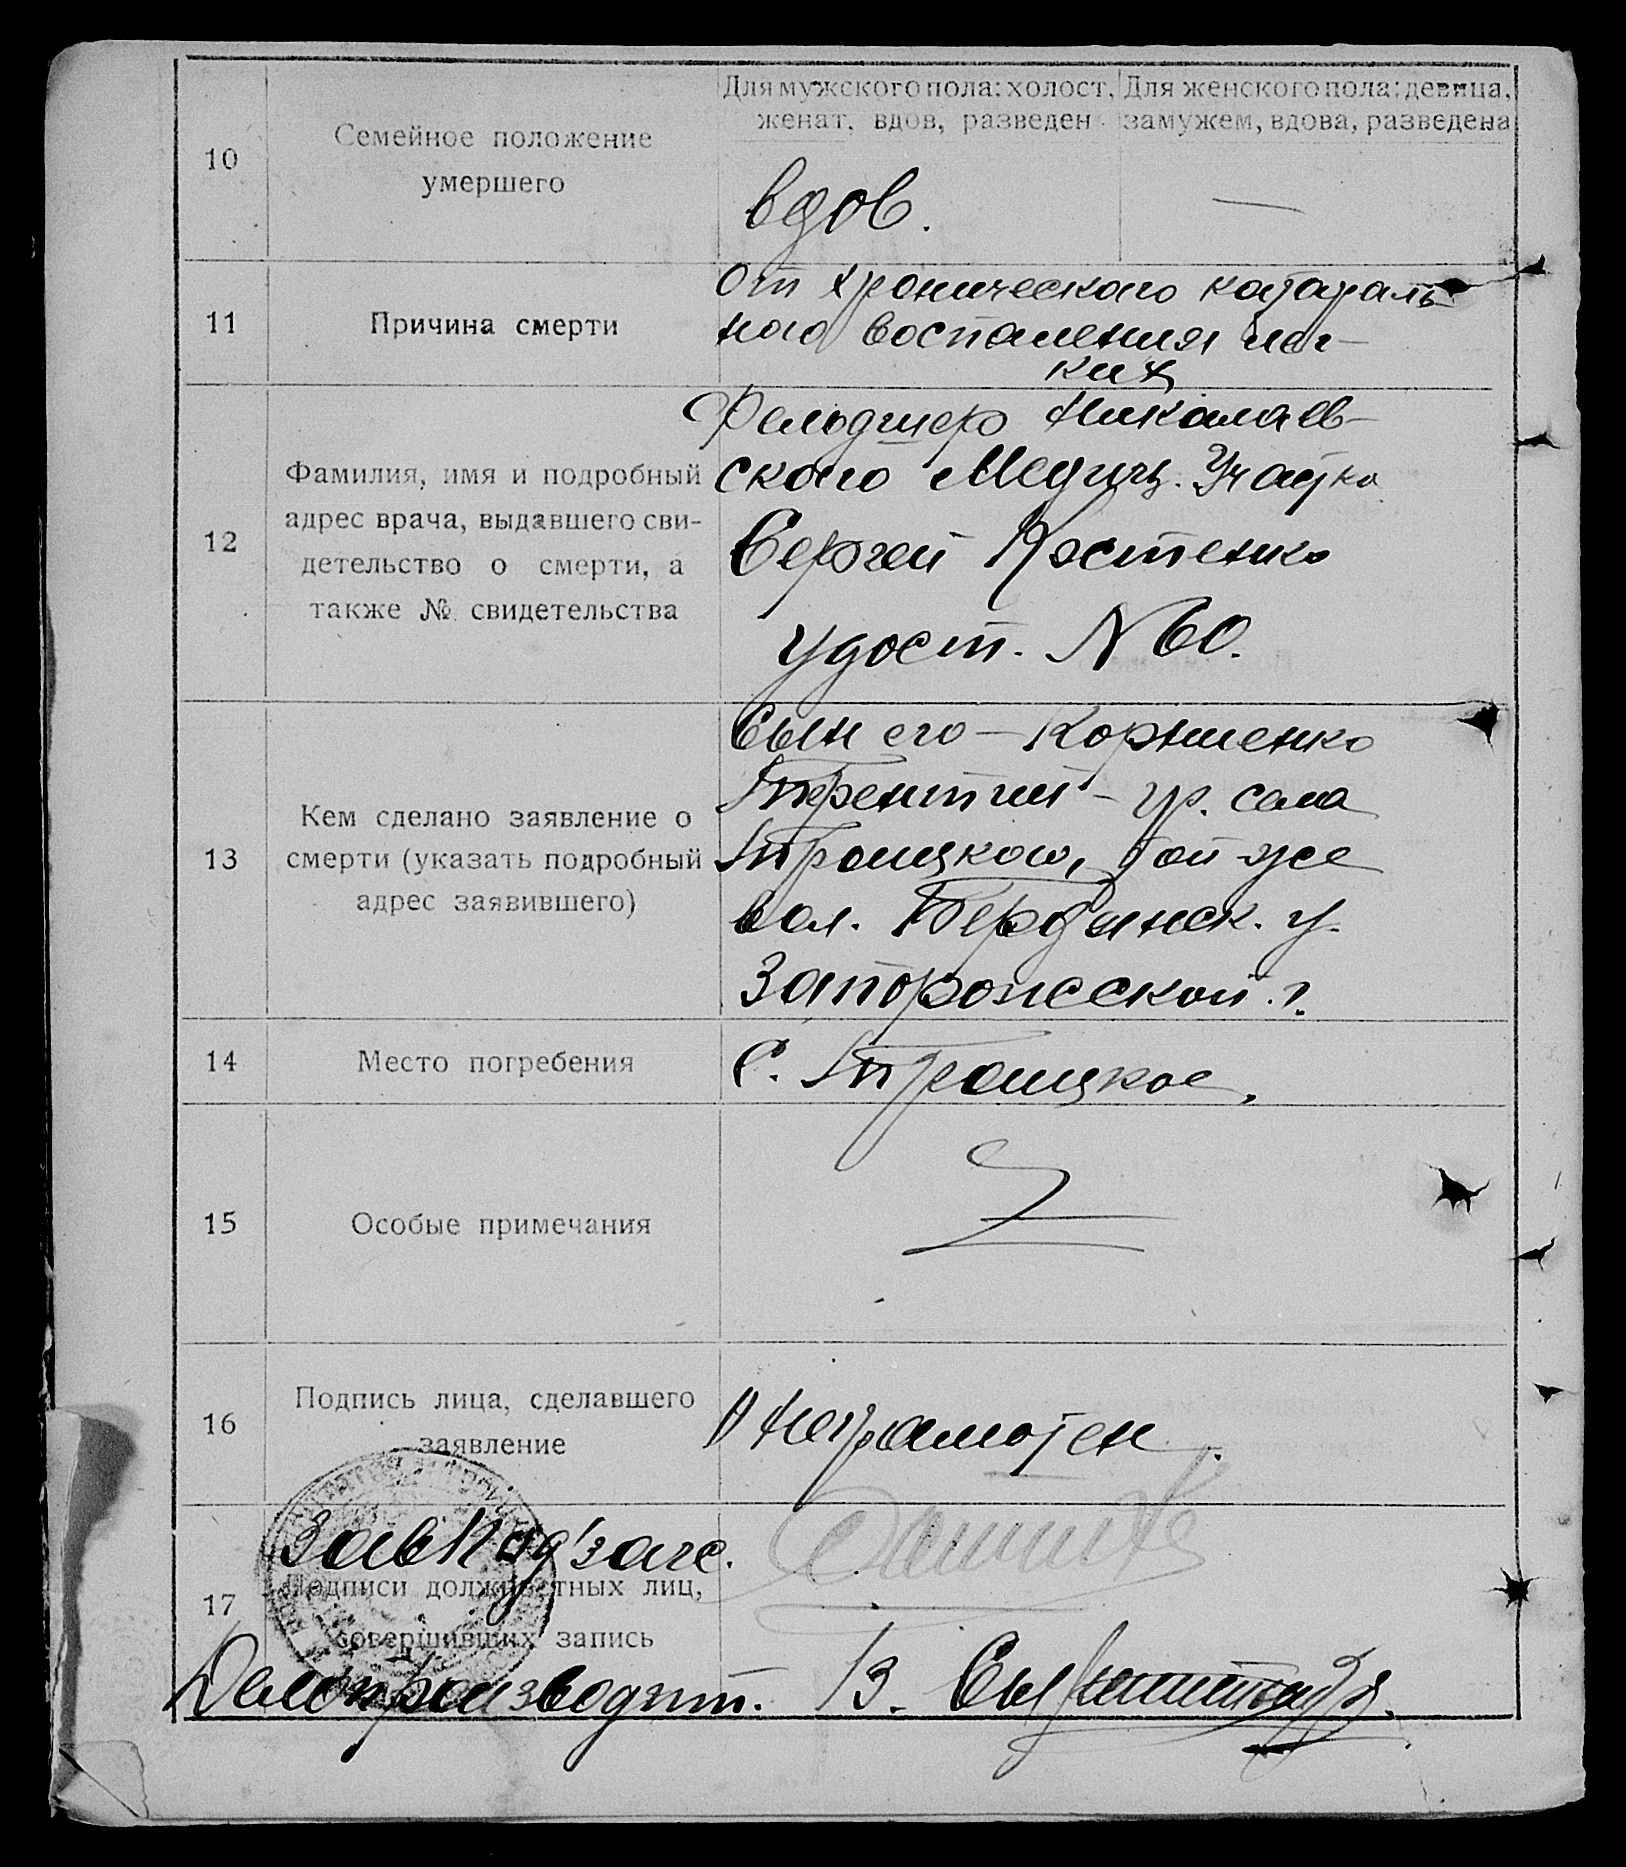 10
Семейное положение
умершего
Для мужского пола: холост,
женат, вдов, разведен
Для женского пола: девица,
замужем, вдова, разведена
вдов.
—
11
Причина смерти
От хронического катараль-
ного воспаления лег-
ких
12
Фамилия, имя и подробный
адрес врача, выдавшего сви-
детельство о смерти, а
также № свидетельства
Фельдшер Николаев-
ского Медиц. Участка
Сергей Костенко
удост. N 60.
13
Кем сделано заявление о
смерти (указать подробный
адрес заявившего)
Сын его — Корниенко
Терентий – гр. села
Троицкого, той же
вол. Бердянск. у.
Запорожской г.
14
Место погребения
С. Троицкое.
15
Особые примечания
16
Подпись лица, сделавшего
заявление
Неграмотен
17
Подписи должностных лиц,
совершивших запись
Зав Подзагс.
Делопроизводит.